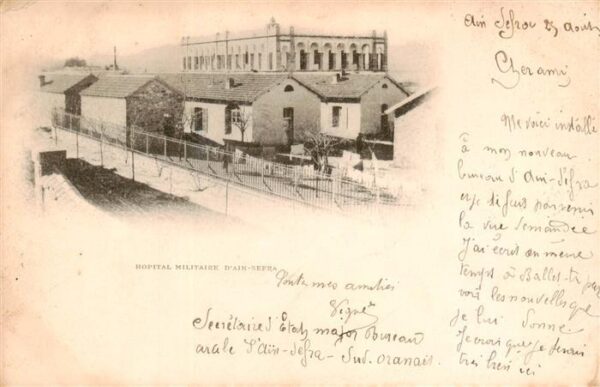 Ain Sefra 25 Août
Cher ami
Me voici installé
à mon nouveau
bureau d'Ain-Sefra
et je te fais parvenir
la vue demandée
J'ai écrit en même
temps à Ballet
vois les nouvelles que
je lui donne
Je crois que je serai
très bien ici
HOPITAL MILITAIRE D'AIN-SEFRA
Toutes mes amitiés
Secrétaire d'Etat major Bureau
arabe d'Ain-Sefra - Sud. Oranais.